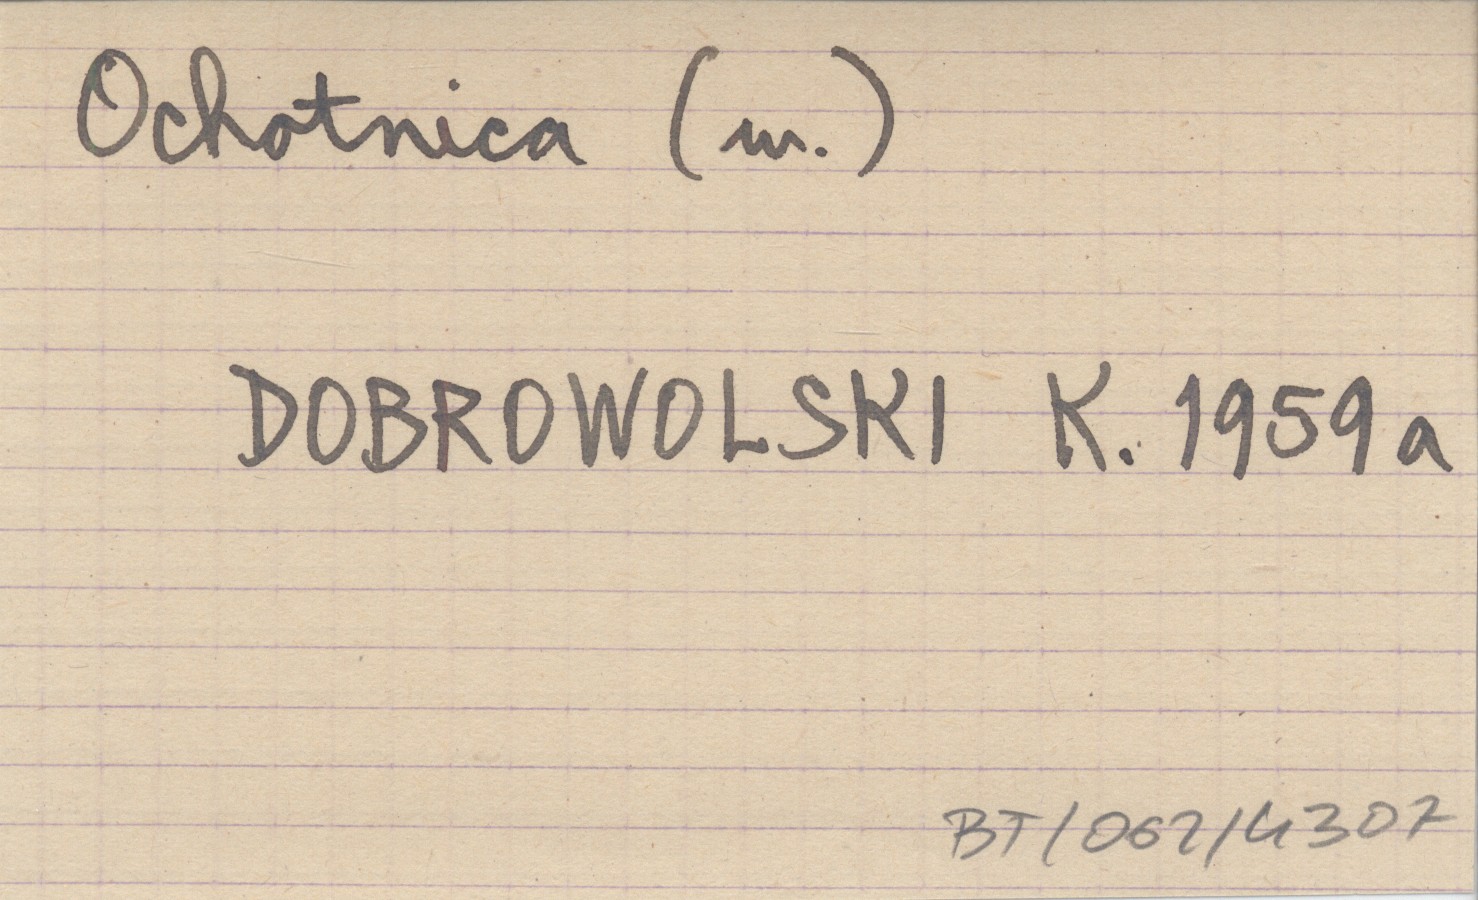 Ochotnica (m.)
DOBROWOLSKI K. 1959a
BT/062/4307